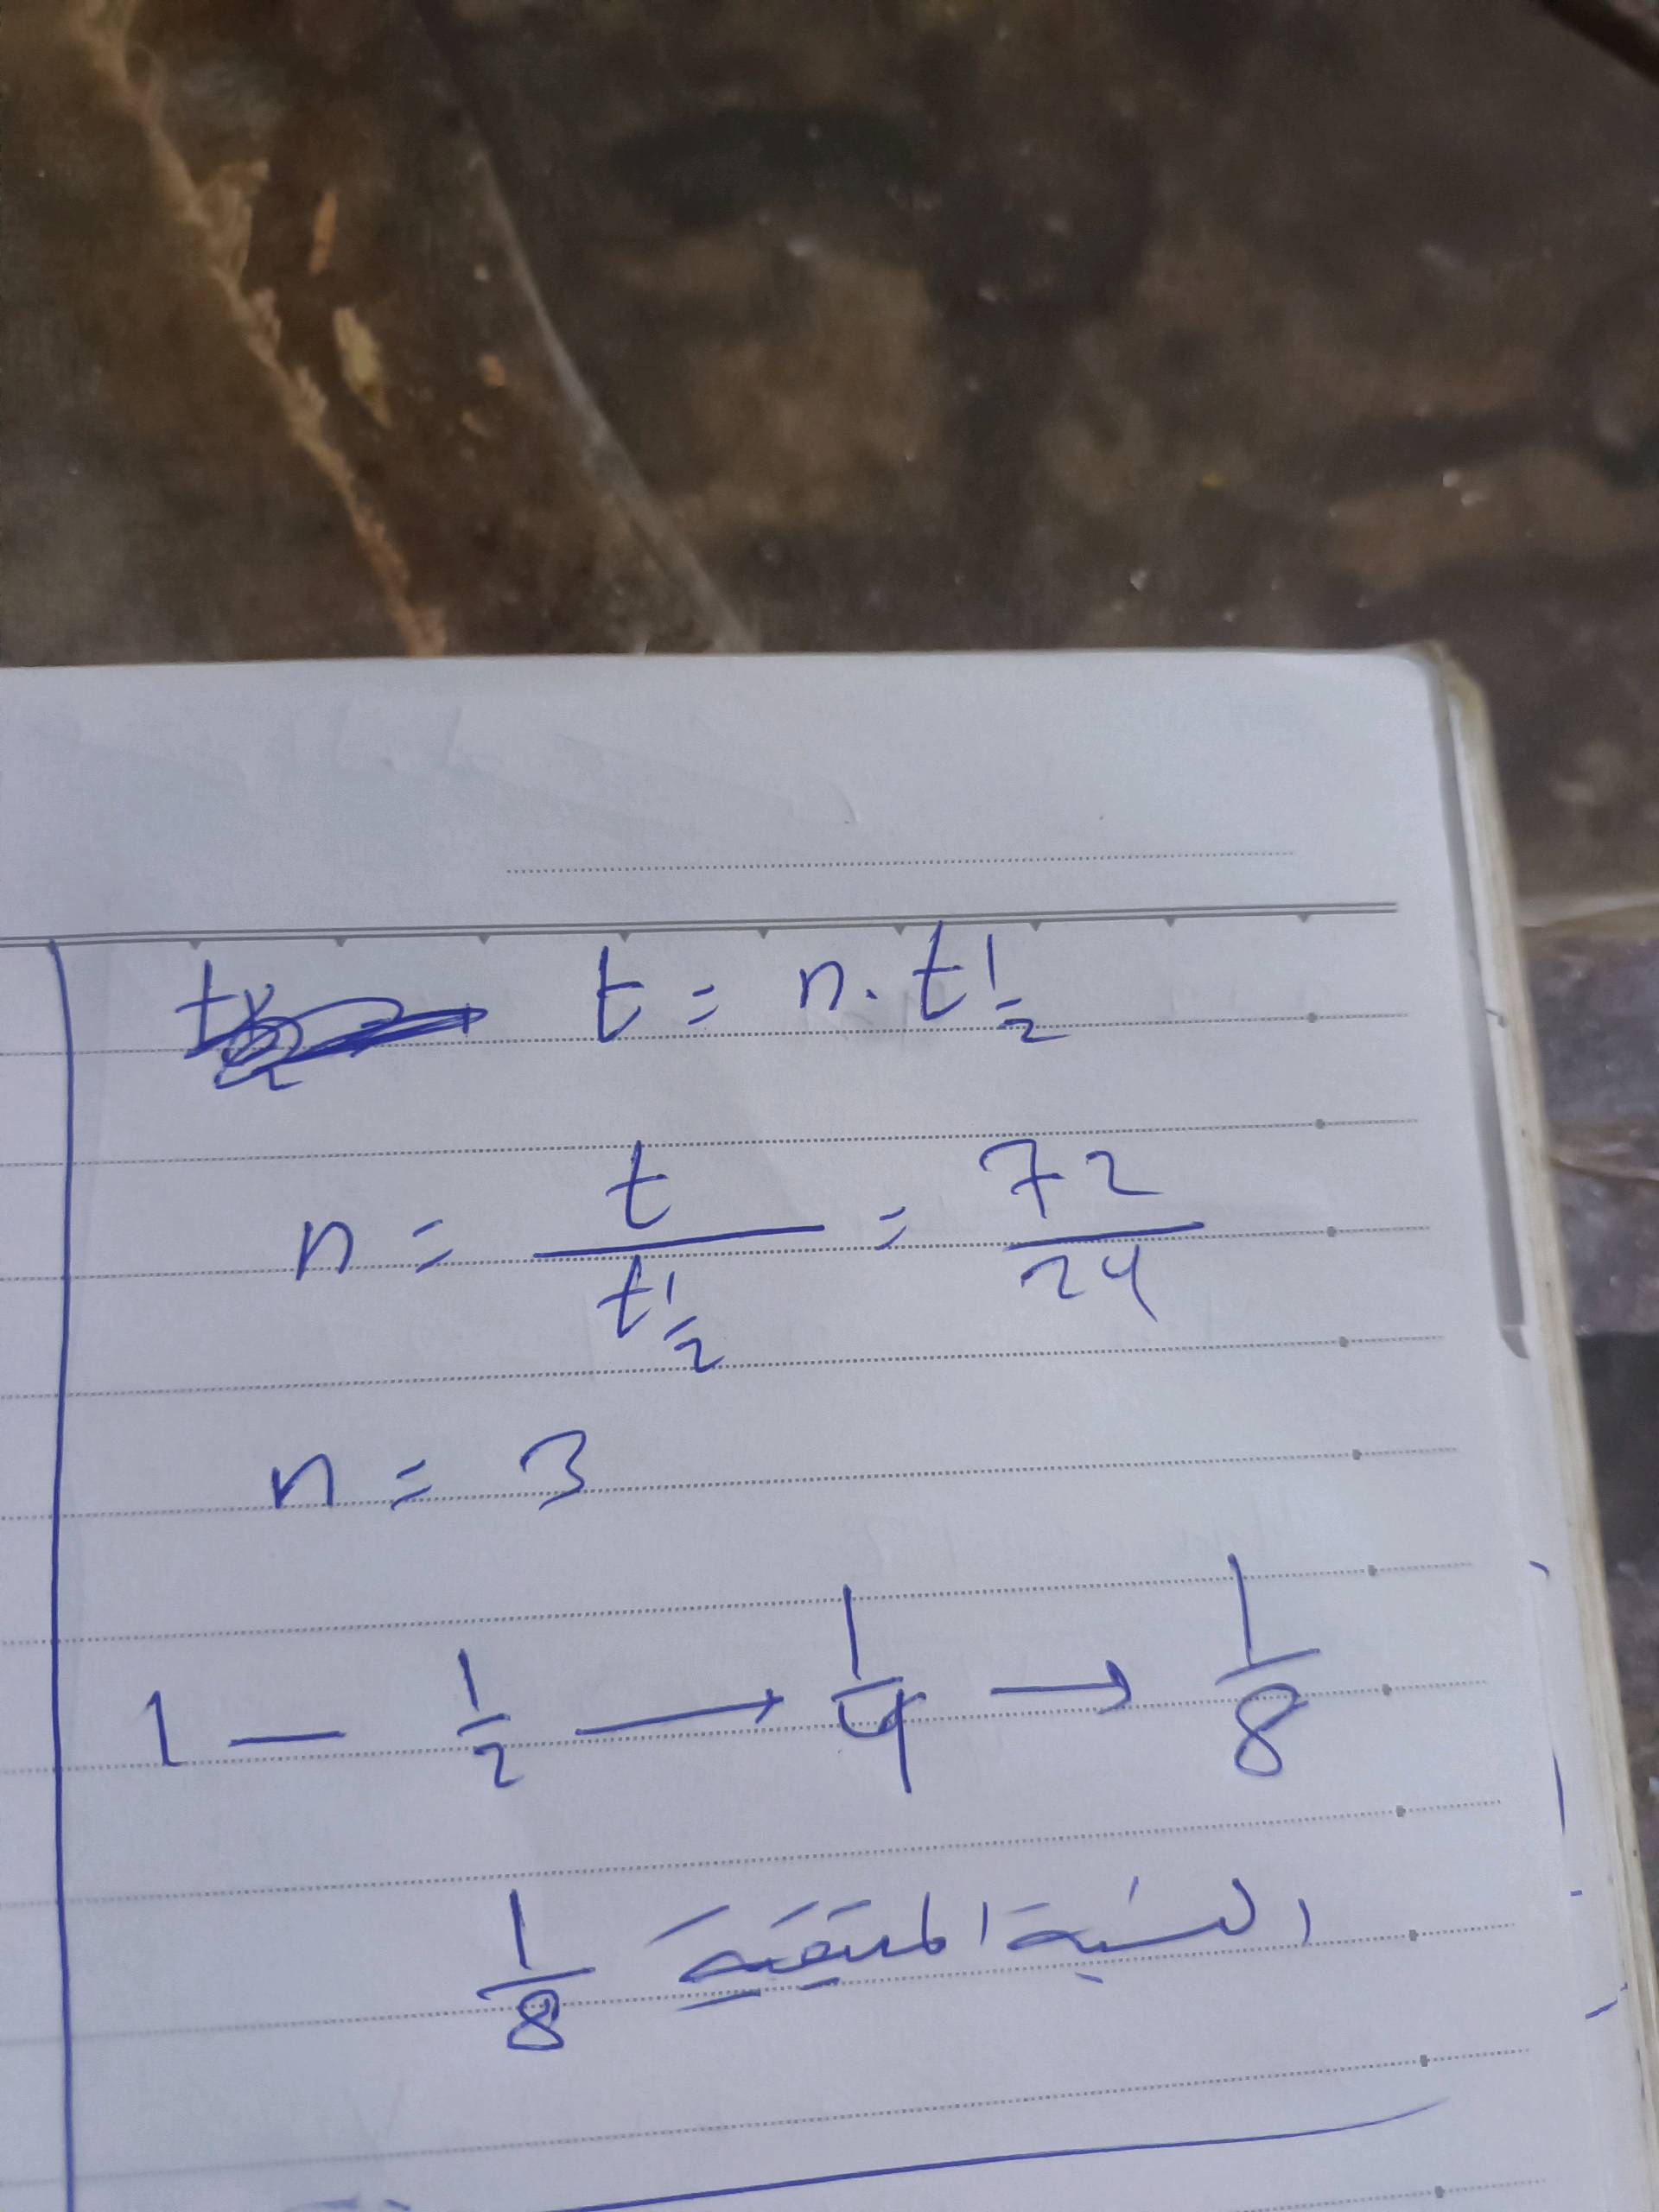 t = n . t 1/2
n = t / t 1/2 = 72 / 24
n = 3
1 — 1/2 → 1/4 → 1/8
النسبة المتبقية 1/8